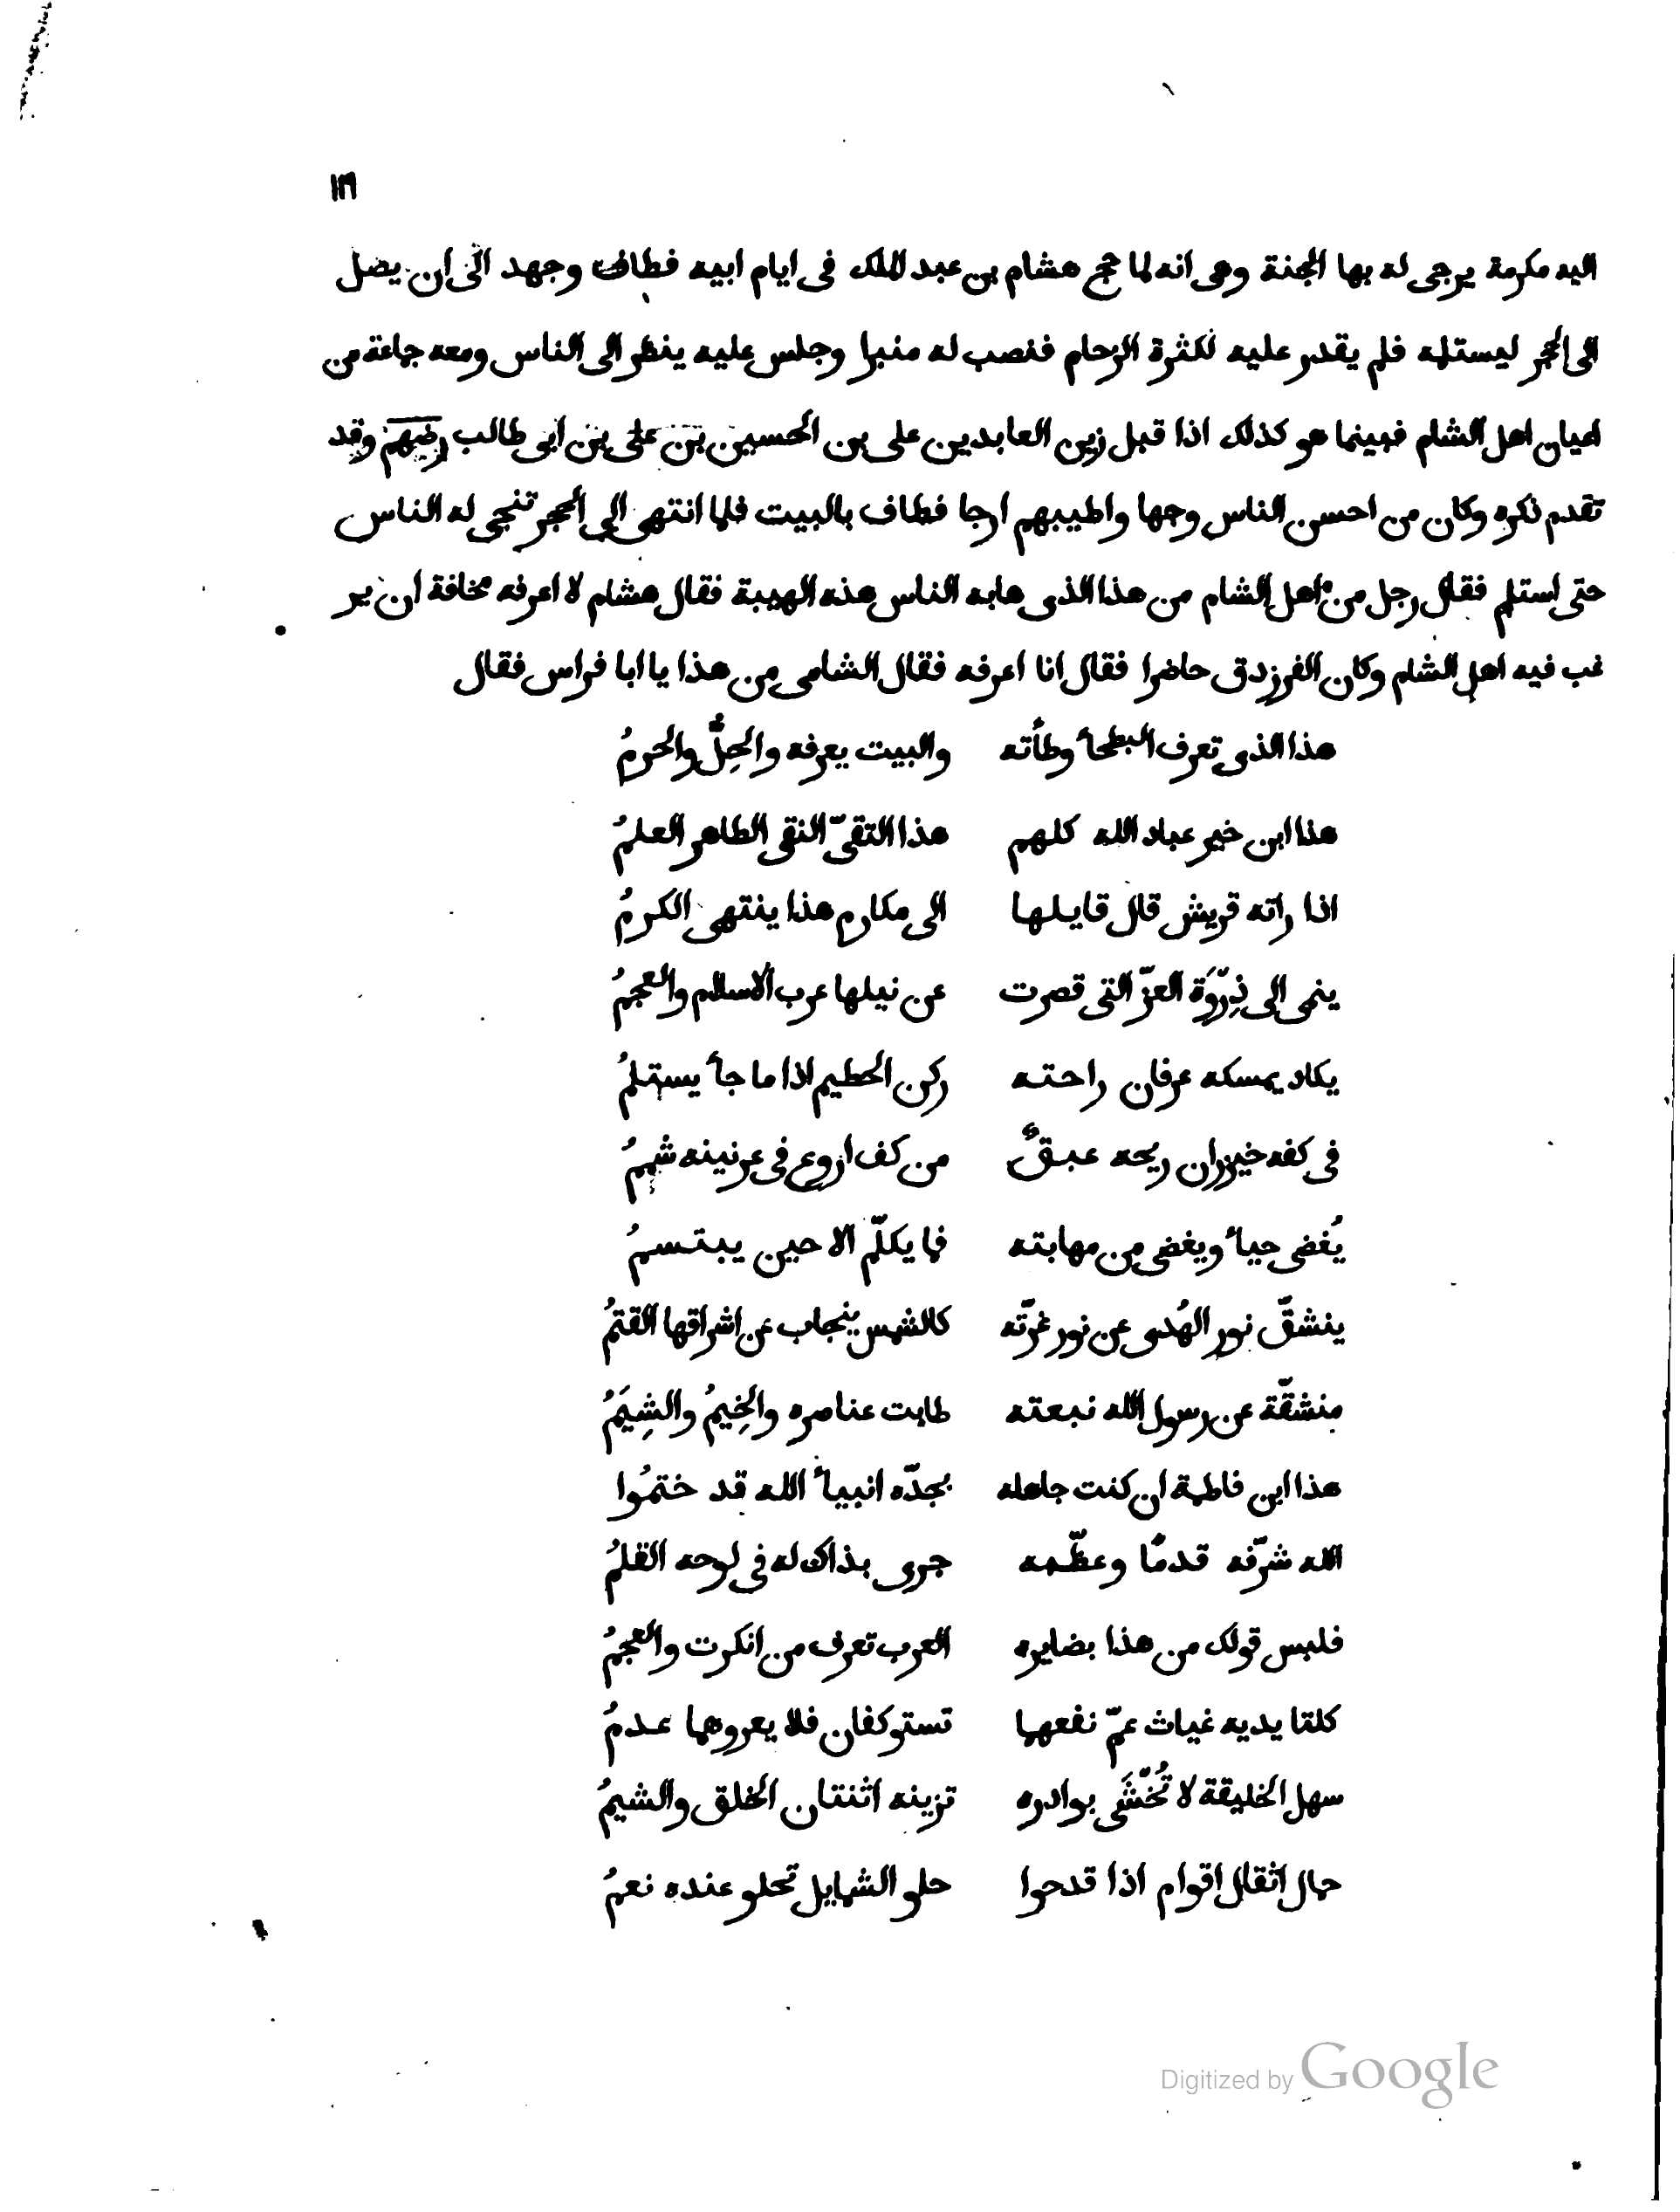 ١٣٦
اليه مكرمة يرجى له بها الجنة وهى انه لما حج هشام بن عبد الملك فى ايام ابيه فطاف وجهد الى ان يصل
الى الحجر ليستلمه فلم يقدر عليه لكثرة الزحام فنصب له منبرا وجلس عليه ينظر الى الناس ومعه جماعة من
اعيان اهل الشام فبينما هو كذلك اذا قبل زين العابدين على بن الحسين بن على بن ابى طالب رضهم وقد
تقدم ذكره وكان من احسن الناس وجها واطيبهم ارجا فطاف بالبيت فلما انتهى الى الحجر تنحى له الناس
حتى استلم فقال رجل من اهل الشام من هذا الذى هابه الناس هذه الهيبة فقال هشام لا اعرفه مخافة ان ير
غب فيه اهل الشام وكان الفرزدق حاضرا فقال انا اعرفه فقال الشامى من هذا يا ابا فراس فقال
هذا الذى تعرف البطحأ وطأته والبيت يعرفه والحِلُّ والحرمُ
هذا ابن خير عباد الله كلهم هذا التقىّ النقى الطاهر العلمُ
اذا راته قريش قال قايلها الى مكارم هذا ينتهى الكرمُ
ينمى الى ذِرْوَة العزّ التى قصرت عن نيلها عرب الاسلام والعجمُ
يكاد يمسكه عرفان راحته ركن الحطيم اذا ما جأ يستلمُ
فى كفه خيزران ريحه عبقٌ من كف اروع فى عرنينه شممُ
يُغضى حيأ ويغضى من مهابته فما يكلّم الا حين يبتسمُ
ينشقّ نور الهُدى عن نور غرّته كالشمس ينجاب عن اشراقها القتمُ
منشقّة عن رسول الله نبعته طابت عناصره والخِيمُ والشِيَمُ
هذا ابن فاطمة ان كنت جاهله بجدّه انبيأ الله قد ختمُوا
الله شرّفه قدمًا وعظّمه جرى بذاك له فى لوحه القلمُ
فليس قولك من هذا بضايره العرب تعرف من انكرت والعجمُ
كلتا يديه غياث عمّ نفعهما تستوكفان فلا يعروهما عدمُ
سهل الخليقة لا تُخْشَى بوادره تزينه اثنتان الخلق والشيمُ
حمال اثقال اقوام اذا قدحوا حلو الشمايل تحلو عنده نعمُ
Digitized by Google